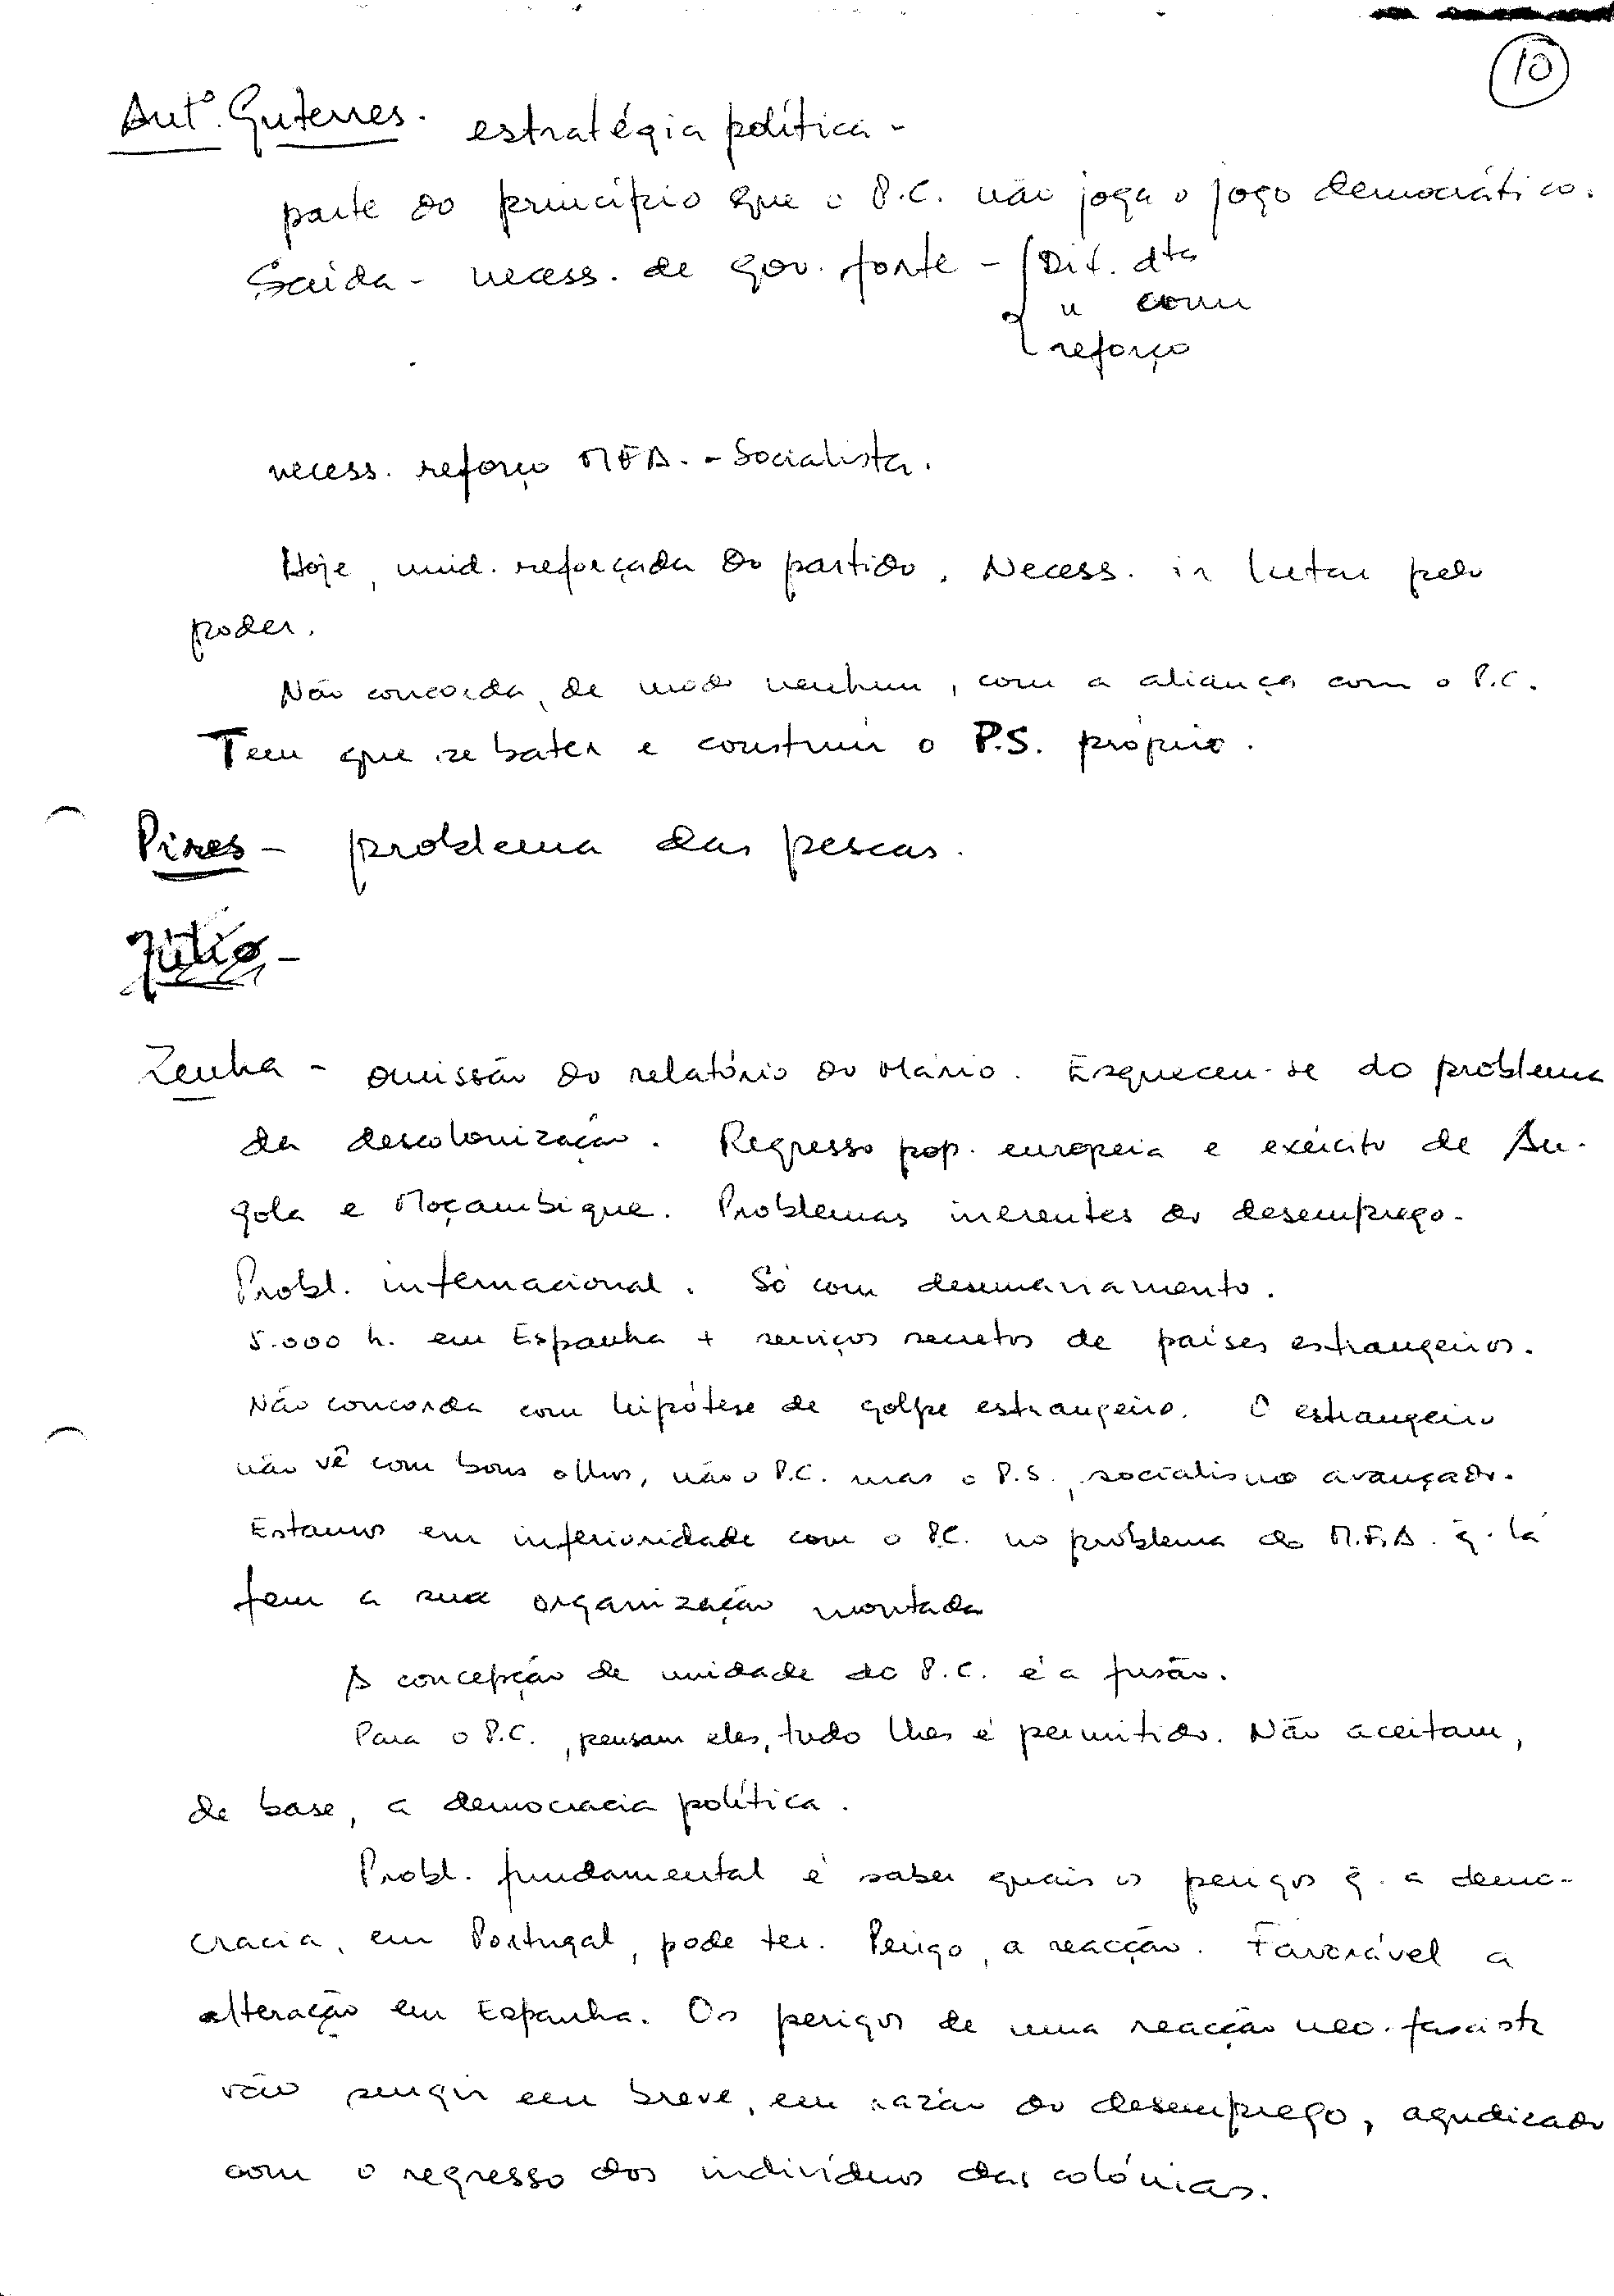 10
Antº. Guterres. estratégia política -
parte do princípio que o P.C. não joga o jogo democrático.
Saída - necess. de gov. forte - Dit. dta
" com
reforço
necess. reforço MFA. - Socialista.
Hoje, unid. reforçada do partido. Necess. ir lutar pelo
poder.
Não concorda, de modo nenhum, com a aliança com o P.C.
Tem que se bater e construir o P.S. próprio.
Pires - problema das pescas.
Júlio -
Zenha - omissão do relatório do Mário. Esqueceu-se do problema
da descolonização. Regresso pop. europeia e exército de An-
gola e Moçambique. Problemas inerentes do desemprego.
Probl. internacional. Só com
5.000 h. em Espanha + serviços secretos de países estrangeiros.
Não concorda com hipótese de golpe estrangeiro. O estrangeiro
não vê com bons olhos, não o P.C. mas o P.S., socialismo avançado.
Estamos em inferioridade com o P.C. no problema do M.F.A. q. lá
tem a sua organização montada
A concepção de unidade do P.C. é a fusão.
Para o P.C., pensam eles, tudo lhes é permitido. Não aceitam,
de base, a democracia política.
Probl. fundamental é saber quais os perigos q. a demo-
cracia, em Portugal, pode ter. Perigo, a reacção. Favorável a
alteração em Espanha. Os perigos de uma reacção neo-fascista
vão surgir em breve, em razão do desemprego, agudizado
com o regresso dos indivíduos das colónias.